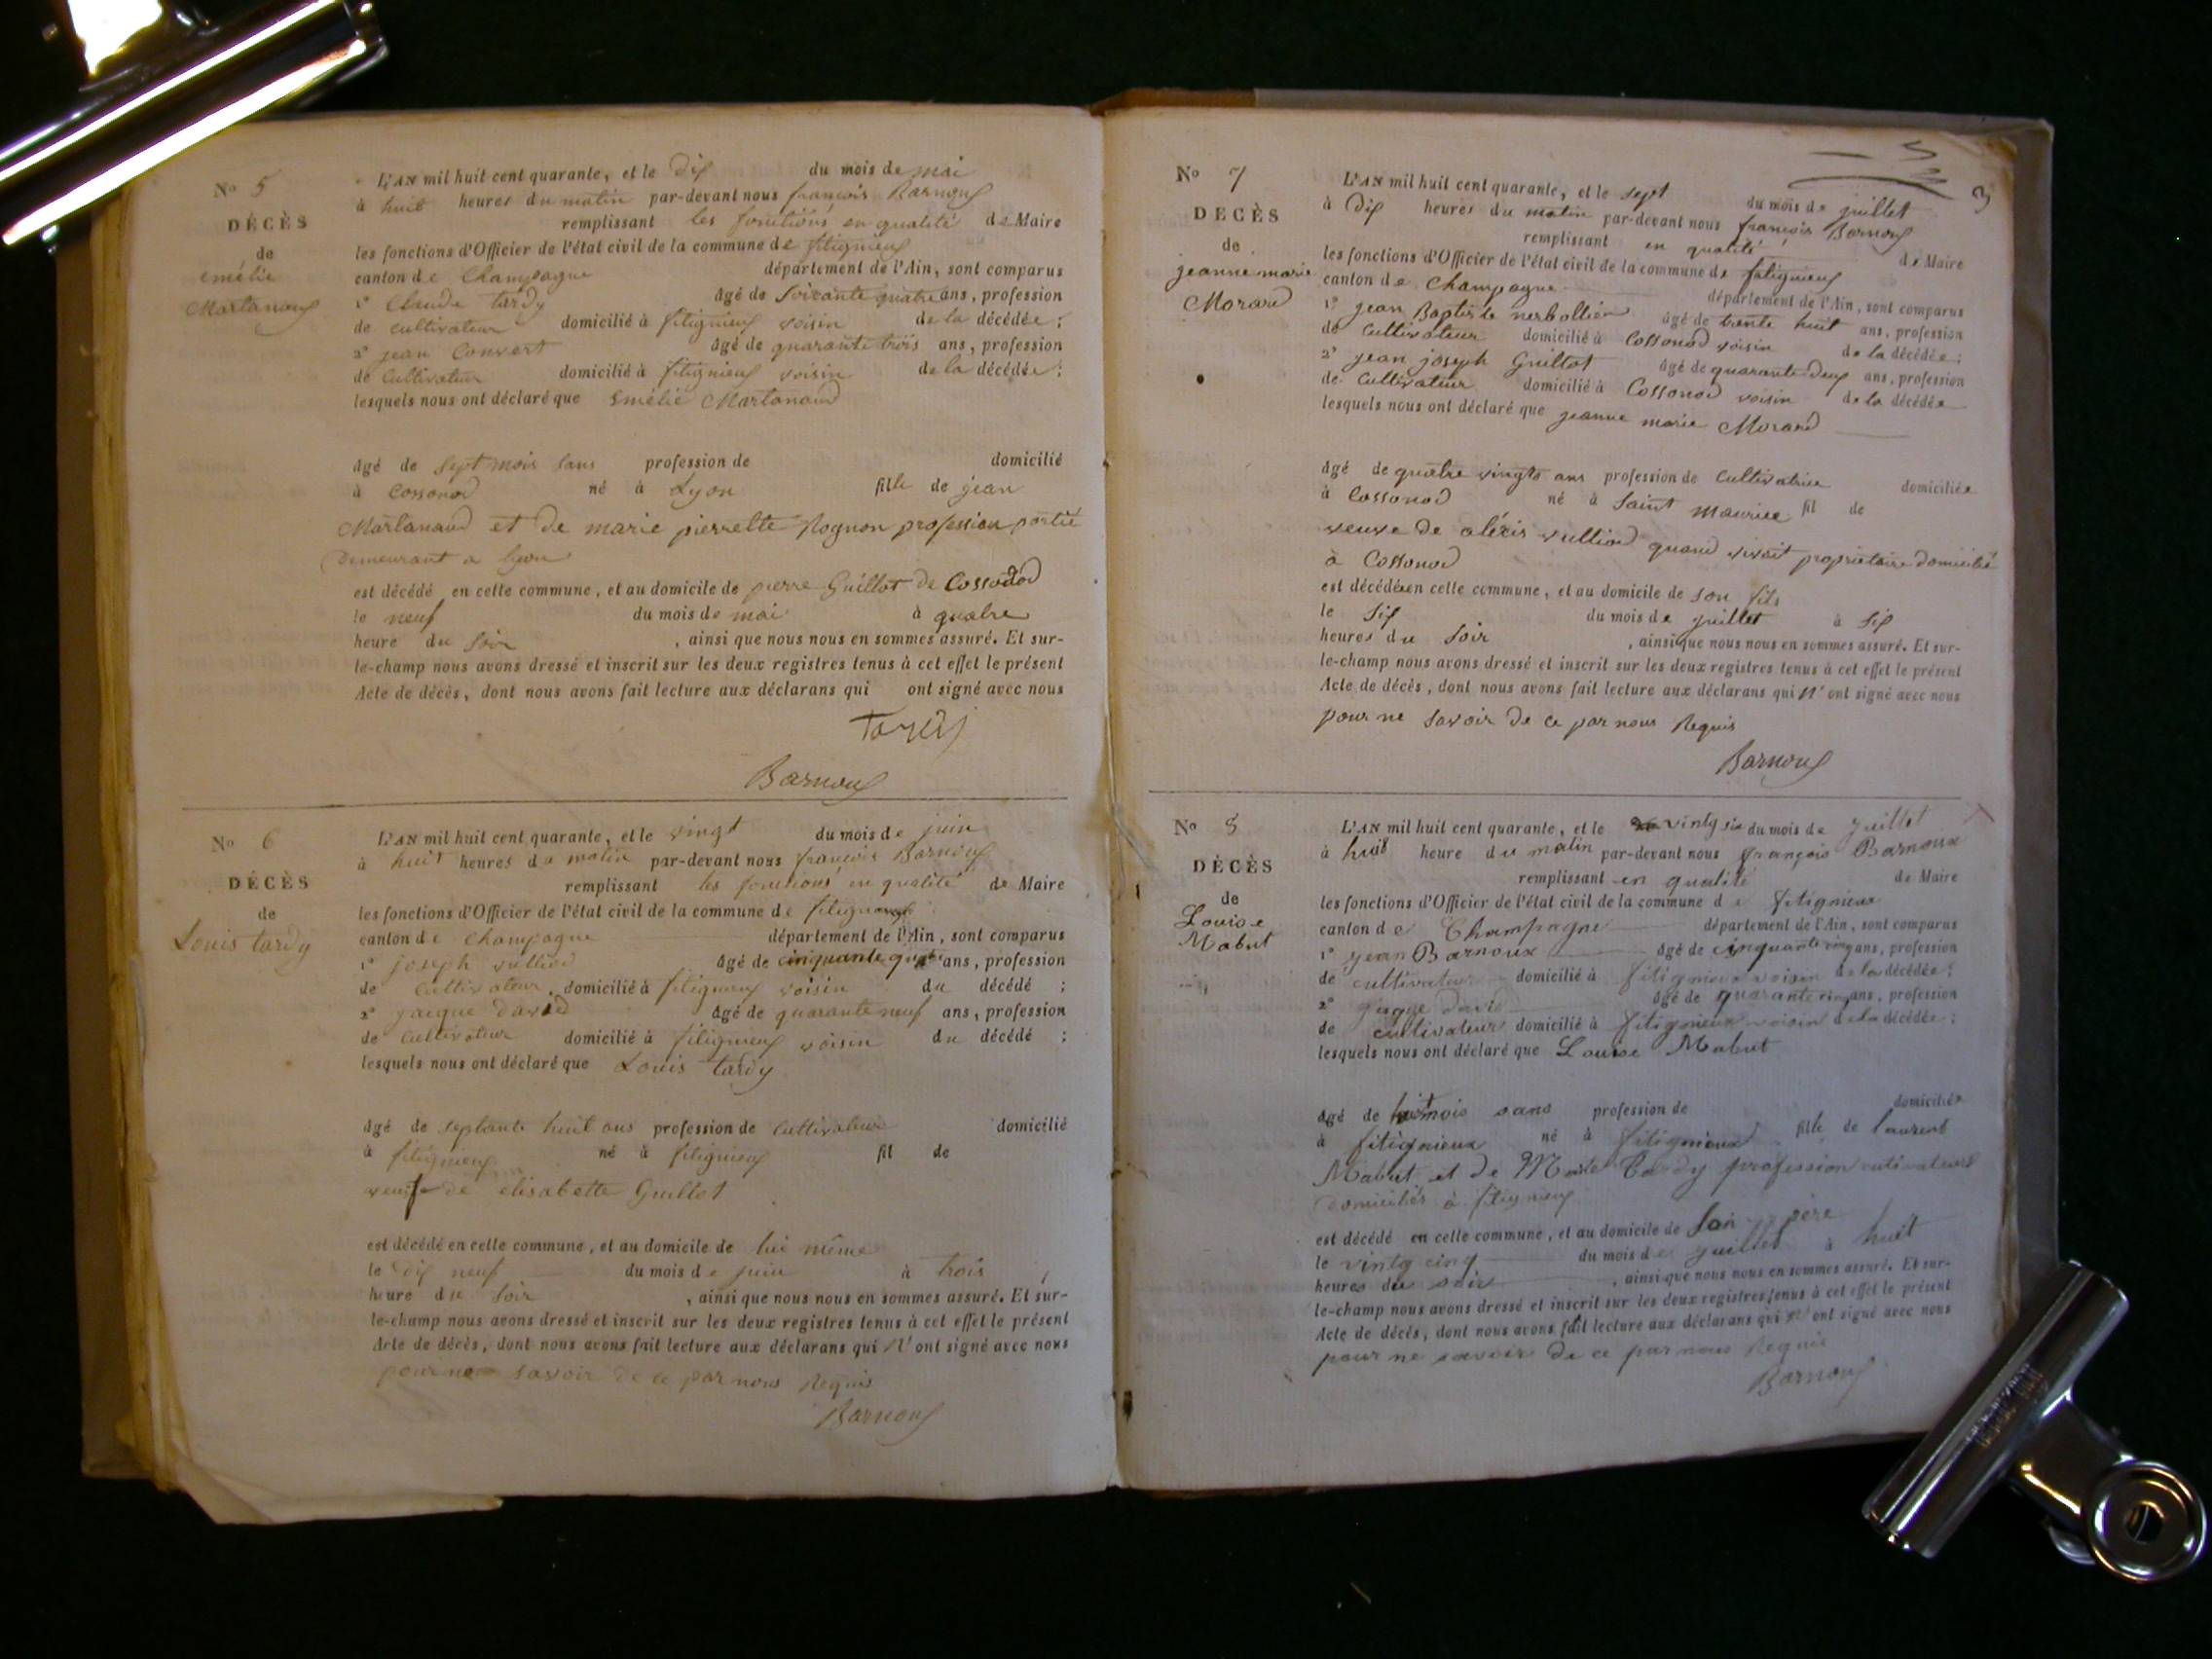 No 5
DÉCÈS
de
emélie
Martanaud
L'AN mil huit cent quarante, et le dix du mois de mai
à huit heures du matin par-devant nous françois Barnoux
remplissant les fonctions en qualité de Maire
les fonctions d'Officier de l'état civil de la commune de fitignieux
canton de Champagne département de l'Ain, sont comparus
1° Claude tardy âgé de soixante quatre ans, profession
de cultivateur domicilié à fitignieux voisin de la décédée;
2° jean Convert âgé de quarante trois ans, profession
de cultivateur domicilié à fitignieux voisin de la décédée;
lesquels nous ont déclaré que Emélie Martanaud
âgé de sept mois sans profession de domicilié
à Cossonod né à Lyon fille de jean
Martanaud et de marie pierrette Rognon profession
demeurant a lyon
est décédé en cette commune, et au domicile de pierre Guillot de Cossonod
le neuf du mois de mai à quatre
heure du soir, ainsi que nous nous en sommes assuré. Et sur-
le-champ nous avons dressé et inscrit sur les deux registres tenus à cet effet le présent
Acte de décès, dont nous avons fait lecture aux déclarans qui ont signé avec nous
Tardy
Barnoux
No 6
DÉCÈS
de
Louis tardy
L'AN mil huit cent quarante, et le vingt du mois de juin
à huit heures du matin par-devant nous françois Barnoux
remplissant les fonctions en qualité de Maire
les fonctions d'Officier de l'état civil de la commune de fitignieux
canton de Champagne département de l'Ain, sont comparus
1° joseph vulliod âgé de cinquante quatre ans, profession
de cultivateur domicilié à fitignieux voisin du décédé;
2° jacque david âgé de quarante neuf ans, profession
de cultivateur domicilié à fitignieux voisin du décédé;
lesquels nous ont déclaré que Louis tardy
âgé de septante huit ans profession de cultivateur domicilié
à fitignieux né à fitignieux fil de
veuf de elisabette Guillot
est décédé en cette commune, et au domicile de lui même
le dix neuf du mois de juin à trois
heure du soir, ainsi que nous nous en sommes assuré. Et sur-
le-champ nous avons dressé et inscrit sur les deux registres tenus à cet effet le présent
Acte de décès, dont nous avons fait lecture aux déclarans qui N'ont signé avec nous
pour ne savoir de ce par nous Requis
Barnoux
3
No 7
DECÈS
de
jeanne marie
Morard
L'AN mil huit cent quarante, et le sept du mois de juillet
à dix heures du matin par-devant nous françois Barnoux
remplissant en qualité de Maire
les fonctions d'Officier de l'état civil de la commune de fitignieux
canton de Champagne département de l'Ain, sont comparus
1° jean Baptiste nerbollier âgé de trente huit ans, profession
de Cultivateur domicilié à Cossonod voisin de la décédée;
2° jean joseph Guillot âgé de quarante-deux ans, profession
de Cultivateur domicilié à Cossonod voisin de la décédée
lesquels nous ont déclaré que jeanne marie Morard
âgé de quatre vingts ans profession de Cultivatrice domiciliée
à Cossonod né à Saint Maurice fil de
veuve de aléxis vulliod quand vivait propriétaire domicilié
à Cossonod
est décédée en cette commune, et au domicile de son fils
le six du mois de juillet à six
heures du soir, ainsi que nous nous en sommes assuré. Et sur-
le-champ nous avons dressé et inscrit sur les deux registres tenus à cet effet le présent
Acte de décès, dont nous avons fait lecture aux déclarans qui N'ont signé avec nous
pour ne savoir de ce par nous Requis
Barnoux
No 8
DÉCÈS
de
Louise
Mabut
L'AN mil huit cent quarante, et le vintg six du mois de juillet
à huit heure du matin par-devant nous françois Barnoux
remplissant en qualité de Maire
les fonctions d'Officier de l'état civil de la commune de fitignieux
canton de Champagne département de l'Ain, sont comparus
1° jean Barnoux âgé de cinquante cinq ans, profession
de cultivateur domicilié à fitignieux voisin de la décédée;
2° jaque david âgé de quarante cinq ans, profession
de cultivateur domicilié à fitignieux voisin de la décédée;
lesquels nous ont déclaré que Louise Mabut
âgé de huit mois sans profession de domiciliée
à fitignieux né à fitignieux fille de laurent
Mabut et de Marie Tardy profession cutivateurs
domiciliés à fitignieux
est décédé en cette commune, et au domicile de son père
le vintg cinq du mois de juillet à huit
heures du soir, ainsi que nous nous en sommes assuré. Et sur-
le-champ nous avons dressé et inscrit sur les deux registres tenus à cet effet le présent
Acte de décès, dont nous avons fait lecture aux déclarans qui N'ont signé avec nous
pour ne savoir de ce par nous Requis
Barnoux